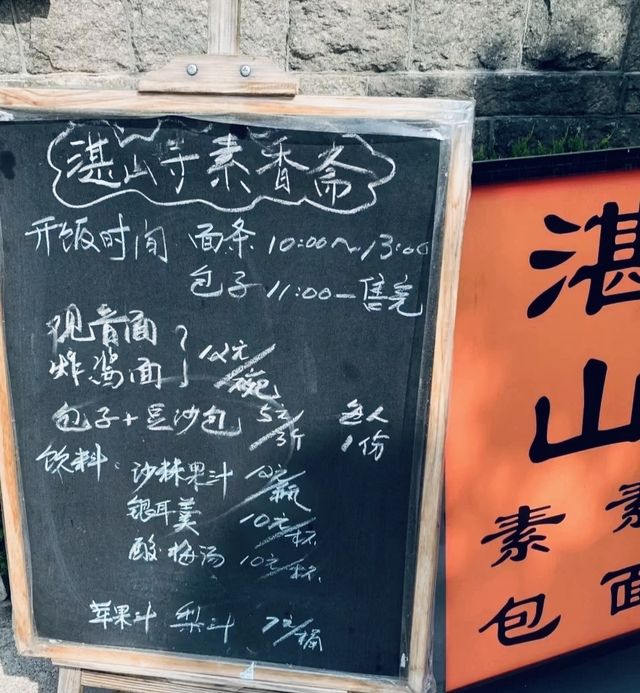 湛山寺素香斋
开饭时间 面条 10:00～13:00
包子 11:00—售完
观音面
炸酱面 } 12元/碗
包子+豆沙包 5元/3个 每人1份
饮料：沙棘果汁 10元/瓶
银耳羹 10元/杯
酸梅汤 10元/杯
苹果汁 梨汁 7元/桶
湛
山
素
素
包
面